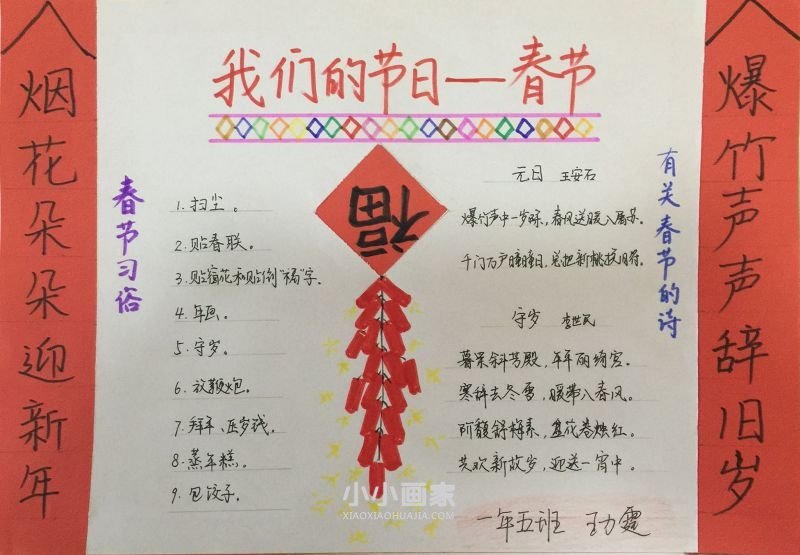 我们的节日——春节
爆竹声声辞旧岁
烟花朵朵迎新年
春节习俗
1. 扫尘。
2. 贴春联。
3. 贴窗花和贴倒“福”字。
4. 年画。
5. 守岁。
6. 放鞭炮。
7. 拜年、压岁钱。
8. 蒸年糕。
9. 包饺子。
福
有关春节的诗
元日 王安石
爆竹声中一岁除，春风送暖入屠苏。
千门万户曈曈日，总把新桃换旧符。
守岁 李世民
暮景斜芳殿，年华丽绮宫。
寒辞去冬雪，暖带入春风。
阶馥舒梅素，盘花卷烛红。
共欢新故岁，迎送一宵中。
一年五班
小小画家
XIAOXIAOHUAJIA.COM